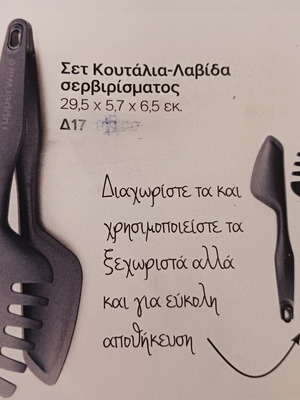 Tupperware
Σετ Κουτάλια-Λαβίδα
σερβιρίσματος
29,5 x 5,7 x 6,5 εκ.
Δ17
Διαχωρίστε τα και
χρησιμοποιείστε τα
ξεχωριστά αλλά
και για εύκολη
αποθήκευση